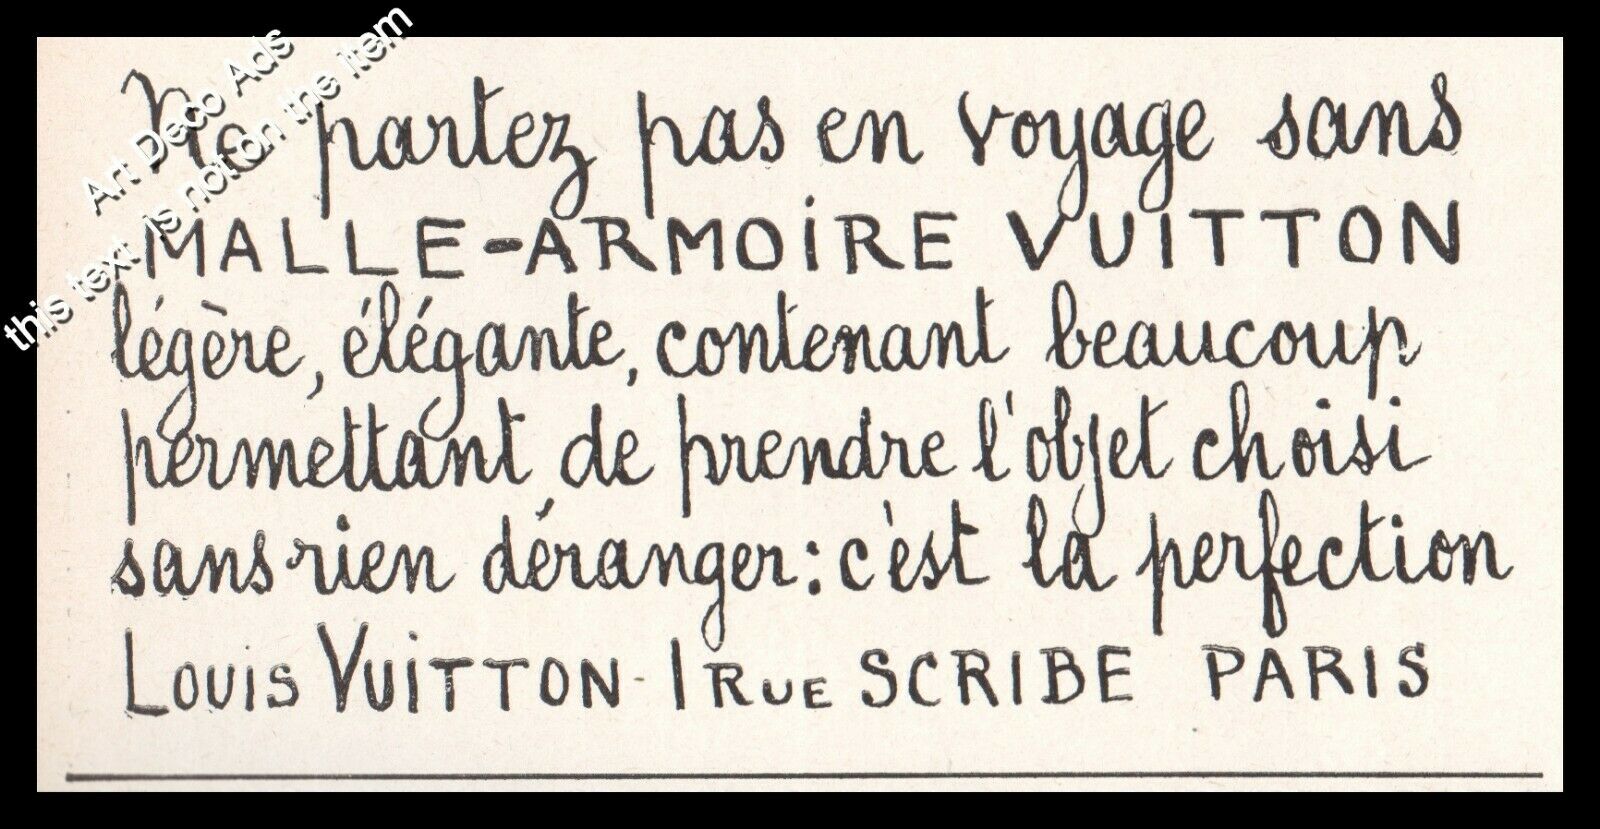 Art Deco Ads
this text is not on the item
Ne partez pas en voyage sans
MALLE-ARMOIRE VUITTON
légère, élégante, contenant beaucoup
permettant de prendre l'objet choisi
sans rien déranger: c'est la perfection
LOUIS VUITTON - 1 RUE SCRIBE PARIS